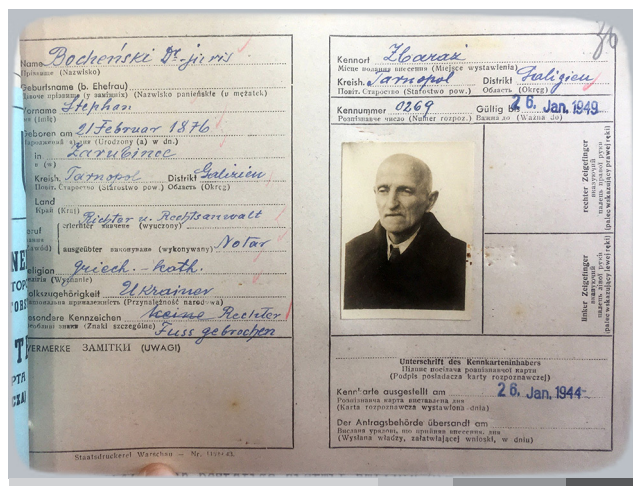 Name Bocheński Dr. juris
Прізвище (Nazwisko)
Geburtsname (b. Ehefrau)
(Nazwisko panieńskie (u mężatek)
Vorname Stephan
Geboren am 21 Februar 1876
(Urodzony (a) w dn.)
in Zarubińce
Kreish. Tarnopol Distrikt Galizien
Повіт. Староство (Starostwo pow.) Область (Okręg)
Land
Край (Kraj)
Beruf Richter u. Rechtsanwalt
erlernter звання (wyuczony)
ausgeübter виконуване (wykonywany) Notar
Religion griech.-kath.
(Wyznanie)
Volkszugehörigkeit Ukrainer
(Przynależność narodowa)
Besondere Kennzeichen Rechter
(Znaki szczególne) Fuss gebrochen
VERMERKE ЗАМІТКИ (UWAGI)
Staatsdruckerei Warschau — Nr.
86
Kennort Zbaraż
Місце (Miejsce wystawienia)
Kreish. Tarnopol Distrikt Galizien
Повіт. Староство (Starostwo pow.) Область (Okręg)
Kennummer 0269 Gültig bis 26. Jan. 1949
Розпізнавче число (Numer rozpoz.) Важна до (Ważna do)
rechter Zeigefinger
вказуючий
палець правої руки
(palec wskazujący prawej ręki)
linker Zeigefinger
вказуючий
палець лівої руки
(palec wskazujący lewej ręki)
Unterschrift des Kennkarteninhabers
Підпис посідача розпізнавчої карти
(Podpis posiadacza karty rozpoznawczej)
Kennkarte ausgestellt am 26. Jan. 1944
Розпізнавча карта виставлена дня
(Karta rozpoznawcza wystawiona dnia)
Der Antragsbehörde übersandt am
(Wysłana władzy, załatwiającej wnioski, w dniu)